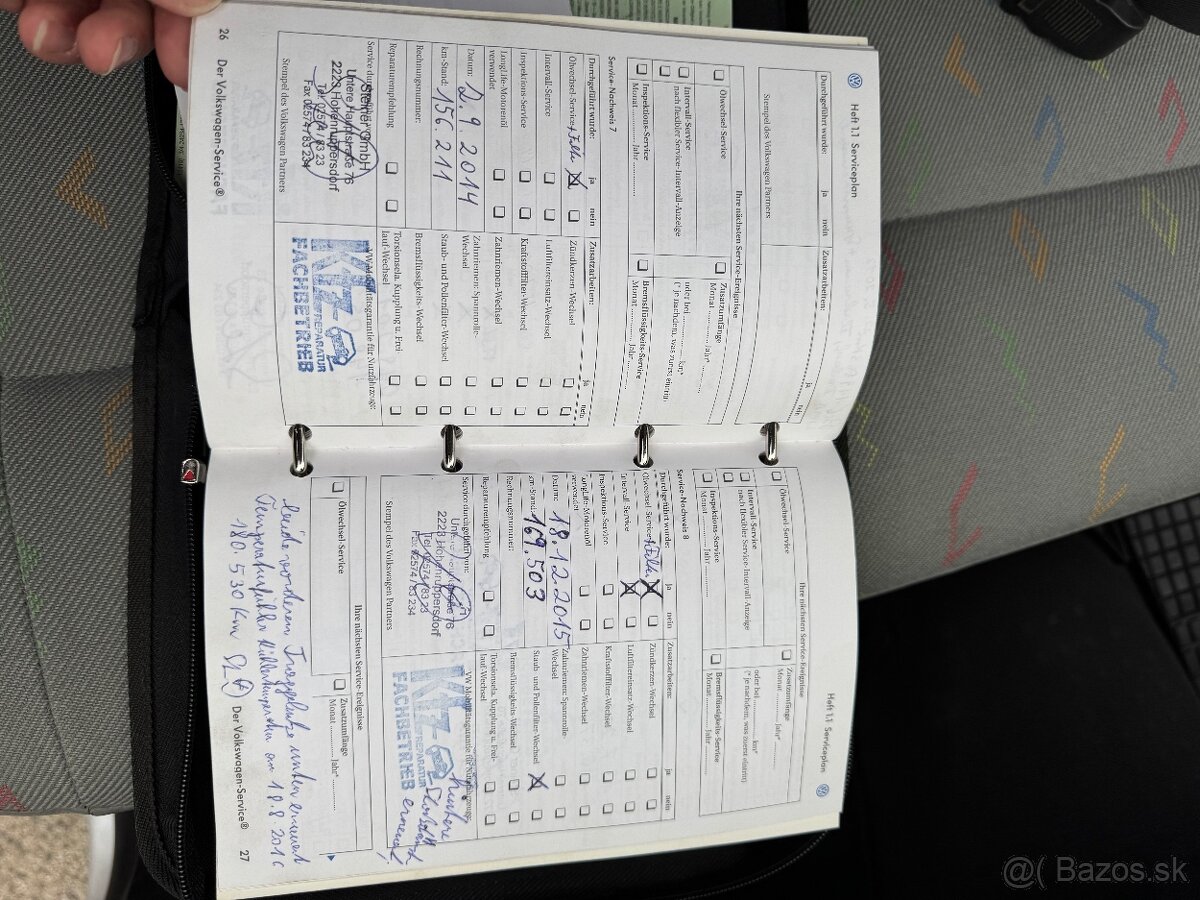 Heft 1.1 Serviceplan
Durchgeführt wurde: ja nein
Zusatzarbeiten: ja nein
Stempel des Volkswagen Partners
Ihre nächsten Service-Ereignisse
Ölwechsel-Service
Intervall-Service
nach flexibler Service-Intervall-Anzeige
Inspektions-Service
Monat ............ Jahr ............
Zusatzumfänge
Monat ............ Jahr* ............
oder bei ............ km*
(* je nachdem, was zuerst eintritt)
Bremsflüssigkeits-Service
Monat ............ Jahr ............
Service-Nachweis 7
Durchgeführt wurde: ja nein
Ölwechsel-Service
Intervall-Service
Inspektions-Service
LongLife-Motorenöl
verwendet
Datum: 2.9.2014
km-Stand: 156.211
Rechnungsnummer:
Reparaturempfehlung
Service durchgeführt von:
Steiner GmbH
Untere Hauptstraße 76
2223 Hohenruppersdorf
Tel. 02574/83 23
Fax 02574/83 234
Stempel des Volkswagen Partners
Zusatzarbeiten: ja nein
Zündkerzen-Wechsel
Luftfiltereinsatz-Wechsel
Kraftstofffilter-Wechsel
Zahnriemen-Wechsel
Zahnriemen: Spannrolle-
Wechsel
Staub- und Pollenfilter-Wechsel
Bremsflüssigkeits-Wechsel
Torsionsela. Kupplung u. Frei-
lauf-Wechsel
VW Mobilitätsgarantie für Nutzfahrzeuge:
Kfz-
REPARATUR
FACHBETRIEB
26 Der Volkswagen-Service®
Heft 1.1 Serviceplan
Ihre nächsten Service-Ereignisse
Ölwechsel-Service
Intervall-Service
nach flexibler Service-Intervall-Anzeige
Inspektions-Service
Monat ............ Jahr ............
Zusatzumfänge
Monat ............ Jahr* ............
oder bei ............ km*
(* je nachdem, was zuerst eintritt)
Bremsflüssigkeits-Service
Monat ............ Jahr ............
Service-Nachweis 8
Durchgeführt wurde: ja nein
Ölwechsel-Service
Intervall-Service
Inspektions-Service
LongLife-Motorenöl
verwendet
Datum: 18.12.2015
km-Stand: 169.503
Rechnungsnummer:
Reparaturempfehlung
Service durchgeführt von:
2223 Hohenruppersdorf
Tel. 02574/83 23
Fax 02574/83 234
Stempel des Volkswagen Partners
Zusatzarbeiten: ja nein
Zündkerzen-Wechsel
Luftfiltereinsatz-Wechsel
Kraftstofffilter-Wechsel
Zahnriemen-Wechsel
Zahnriemen: Spannrolle-
Wechsel
Staub- und Pollenfilter-Wechsel
Bremsflüssigkeits-Wechsel
Torsionsela. Kupplung u. Frei-
lauf-Wechsel
VW Mobilitätsgarantie für Nutzfahrzeuge:
Kfz-
REPARATUR
FACHBETRIEB
hintere
erneuert
Ihre nächsten Service-Ereignisse
Ölwechsel-Service
Zusatzumfänge
Monat ............ Jahr* ............
beide vorderen Traggelenke unten erneuert
Temperaturfühler Kühlertemperatur am 18.8.2016
180.530 Km
Der Volkswagen-Service® 27
@( Bazos.sk